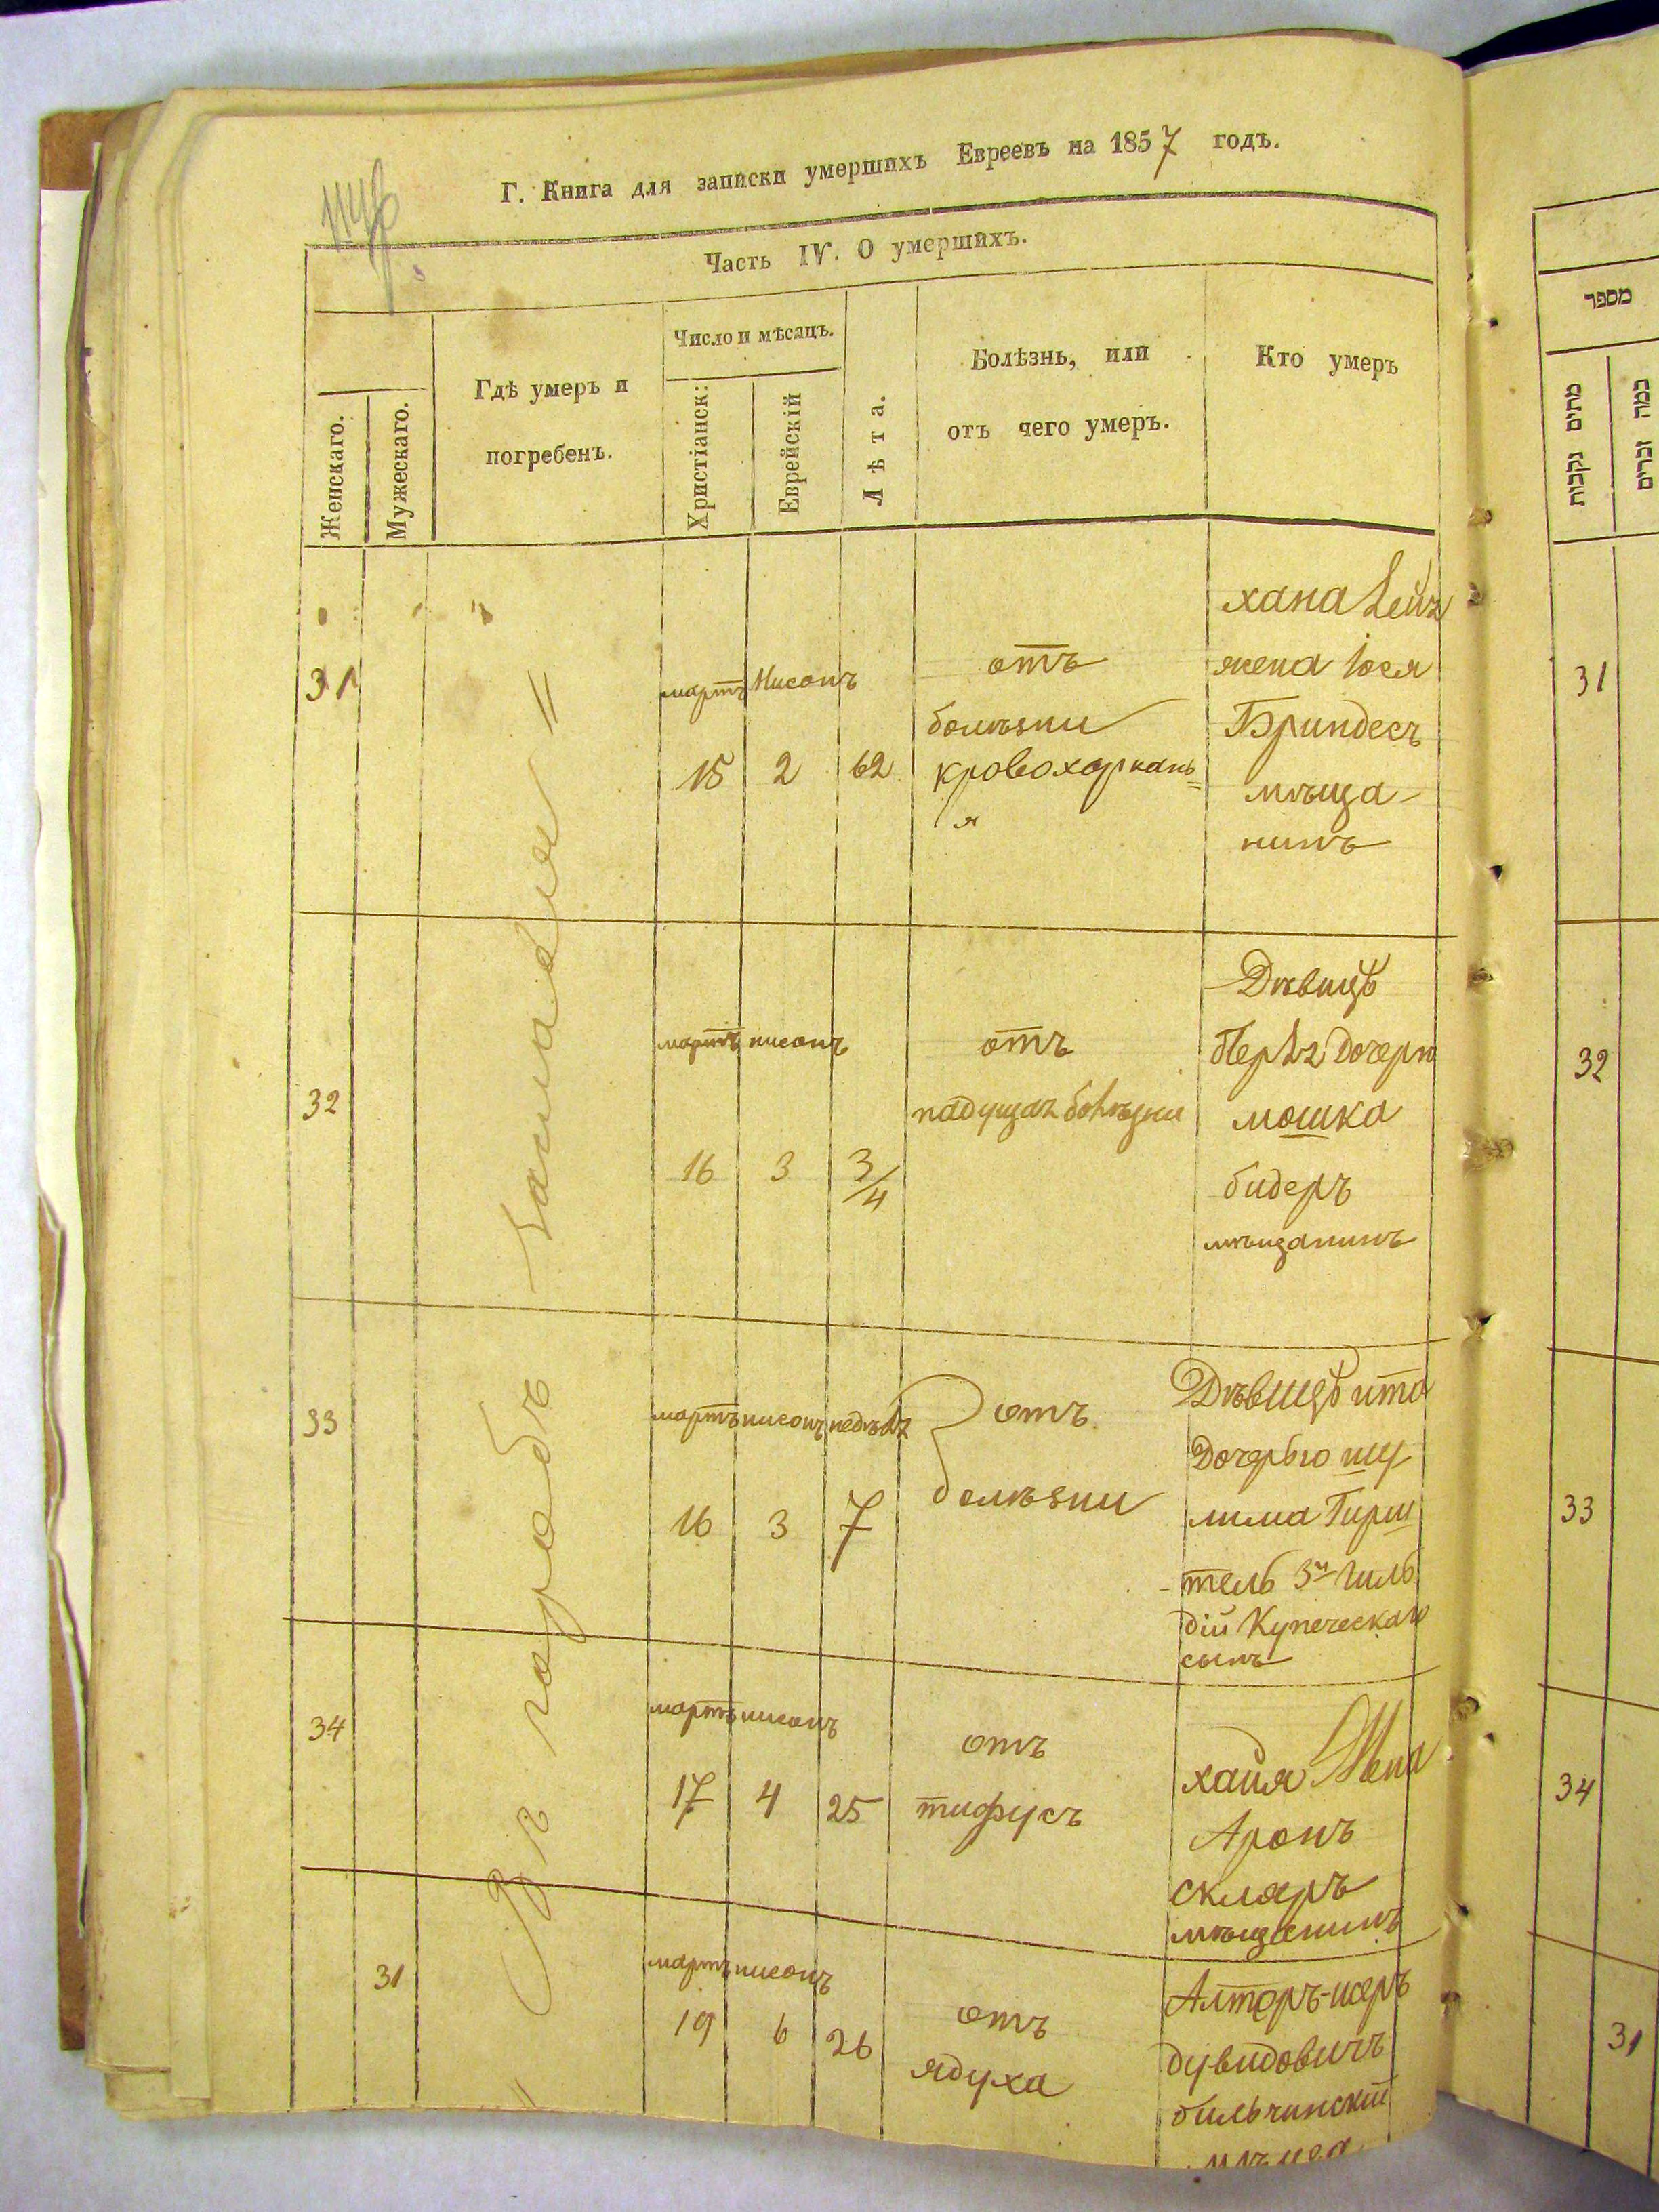 Г. Книга для записки умершихъ Евреевъ на 1857 годъ.
Часть IV. О умершихъ.
Женскаго.
Мужескаго.
Гдѣ умеръ и
погребенъ.
Число и мѣсяцъ.
Христіанск:
Еврейскій
Лѣта.
Болѣзнь, или
отъ чего умеръ.
Кто умеръ
Въ городѣ
31
мартъ Нисонъ
15 2 62
отъ
болѣзни
кровохаркань=
я
хана
жена Іося
Бриндесъ
мѣща-
нинъ
32
мартъ нисонъ
16 3 3/4
отъ
падущая болѣзни
Дѣвицѣ
Дочерю
мошка
бидеръ
мѣщанинъ
33
мартъ нисонъ недѣль
16 3 7
отъ
болѣзни
Дѣвицѣ ита
Дочерью шу
лима Гирш
тель 3й гиль
дій Купеческаго
сынъ
34
мартъ нисонъ
17 4 25
отъ
тифусъ
хаия
Аронъ
скляръ
мѣщанинъ
31
мартъ нисонъ
19 6 26
отъ
ядуха
Алтеръ-иеръ
дувидовичъ
бильчинскій
מספר
מתים נקבות
כמה זכרים
31
32
33
34
31